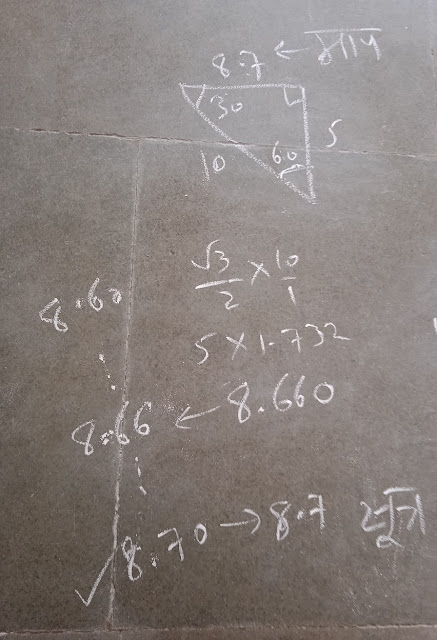 8.7 ← माप
30
5
60
10
√3/2 × 10/1
8.60
5 × 1.732
8.66 ← 8.660
✓ 8.70 → 8.7 सूत्र